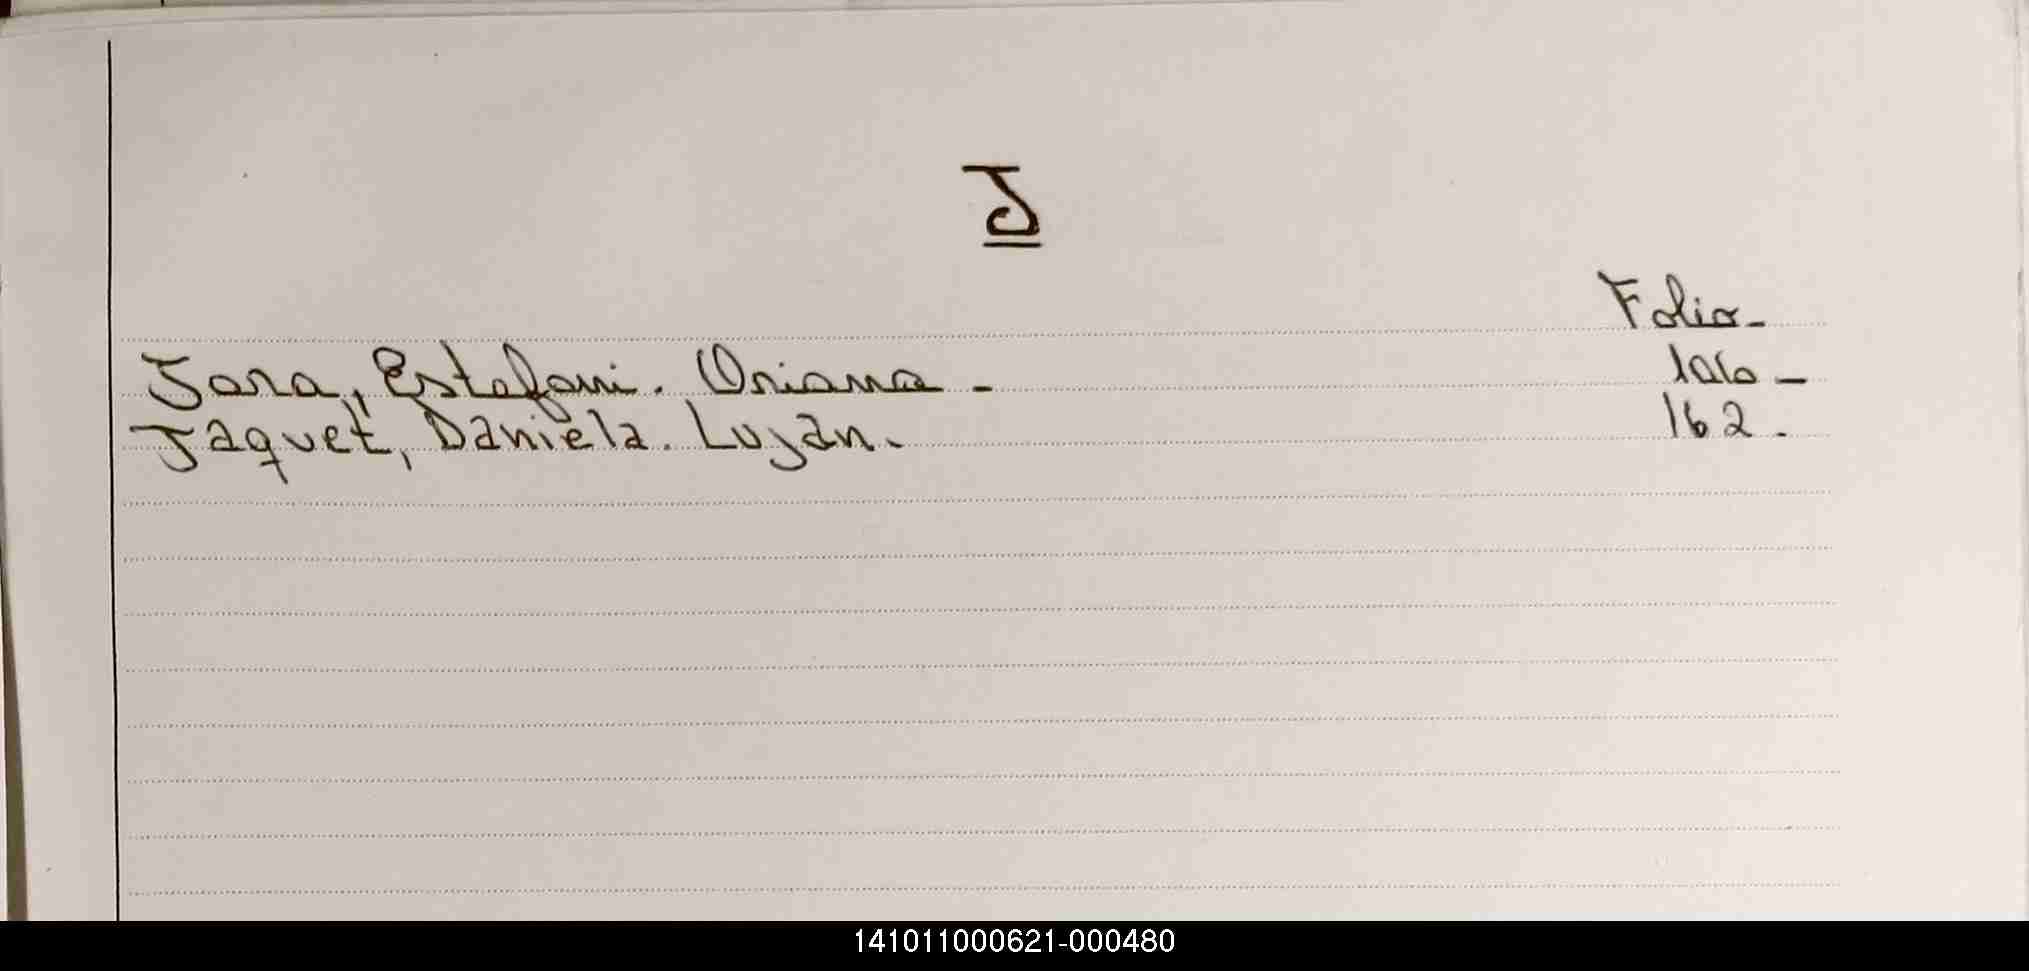 J
Folio-
Jara, Estefani. Oriana - 106 -
Jaquet, Daniela. Luján. 162.
141011000621-000480